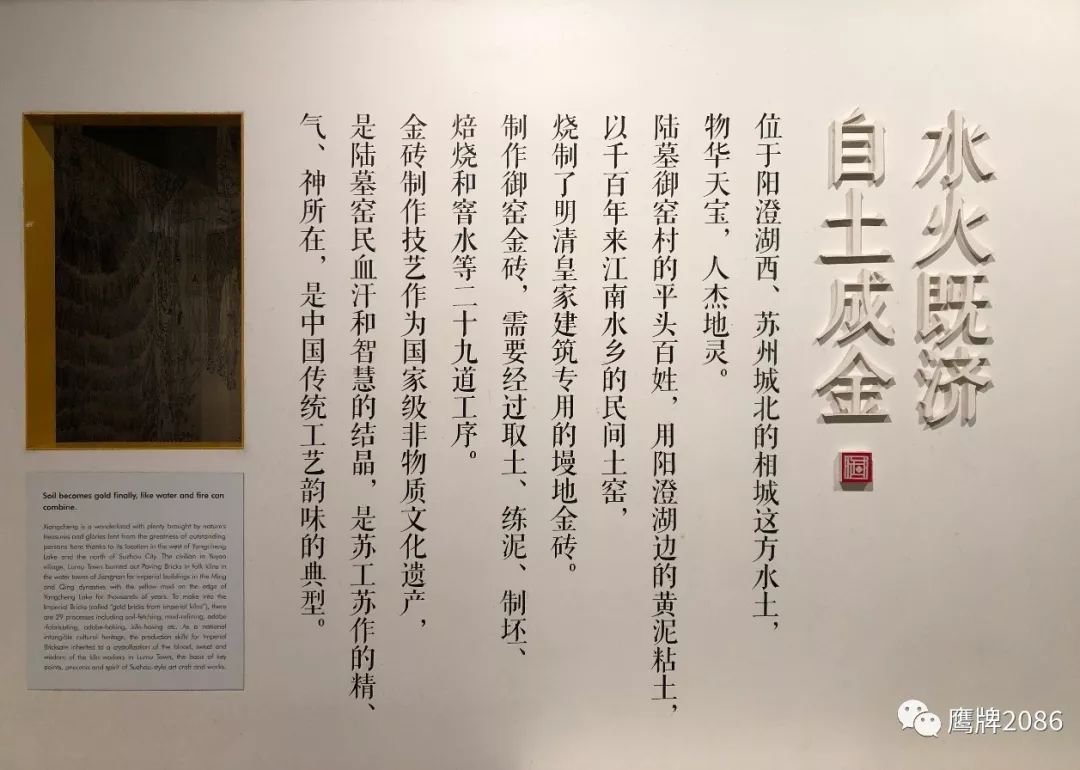 水火既济
自土成金
位于阳澄湖西、苏州城北的相城这方水土，
物华天宝，人杰地灵。
陆墓御窑村的平头百姓，用阳澄湖边的黄泥粘土，
以千百年来江南水乡的民间土窑，
烧制了明清皇家建筑专用的墁地金砖。
制作御窑金砖，需要经过取土、练泥、制坯、
焙烧和窨水等二十九道工序。
金砖制作技艺作为国家级非物质文化遗产，
是陆墓窑民血汗和智慧的结晶，是苏工苏作的精、
气、神所在，是中国传统工艺韵味的典型。
Soil becomes gold finally, like water and fire can
combine.
Xiangcheng is a wonderland with plenty brought by nature's
treasures and glories lent from the greatness of outstanding
persons here thanks to its location in the west of Yangcheng
Lake and the north of Suzhou City. The civilian in Yuyao
village, Lumu Town burnted out Paving Bricks in folk kilns in
the water towns of Jiangnan for imperial buildings in the Ming
and Qing dynasties with the yellow mud on the edge of
Yangcheng Lake for thousands of years. To make into the
Imperial Bricks (called "gold bricks from imperial kilns"), there
are 29 processes including soil-fetching, mud-refining, adobe
-fabricating, adobe-baking, kiln-having etc. As a national
intangible cultural heritage, the production skills for Imperial
Bricksare inherited to a crystallization of the blood, sweat and
wisdom of the kiln workers in Lumu Town, the basis of key
points, process and spirit of Suzhou-style art craft and works.
鹰牌2086